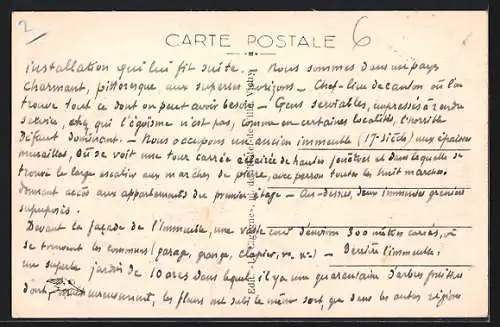 2
CARTE POSTALE
6
installation qui lui fit suite. — Nous sommes dans un pays
charmant, pittoresque aux superbes horizons — Chef-lieu de canton où l'on
trouve tout ce dont on peut avoir besoin — Gens serviables, empressés à rendre
service, chez qui l'égoïsme n'est pas, comme en certaines localités, l'horrible
défaut dominant. — Nous occupons un ancien immeuble (17e siècle) aux épaisses
murailles, où se voit une tour carrée éclairée de hautes fenêtres et dans laquelle se
trouve le large escalier aux marches de pierre, avec perron toutes les huit marches
donnant accès aux appartements du premier étage — Au-dessus, deux immenses greniers
superposés.
Devant la façade de l'immeuble, une vaste cour d'environ 300 mètres carrés, où
se trouvent les communs (garage, grange, clapier, — Derrière l'immeuble,
un superbe jardin de 10 ares dans lequel il y a une quarantaine d'arbres fruitiers
dont, malheureusement, les fleurs ont subi le même sort que dans les autres régions